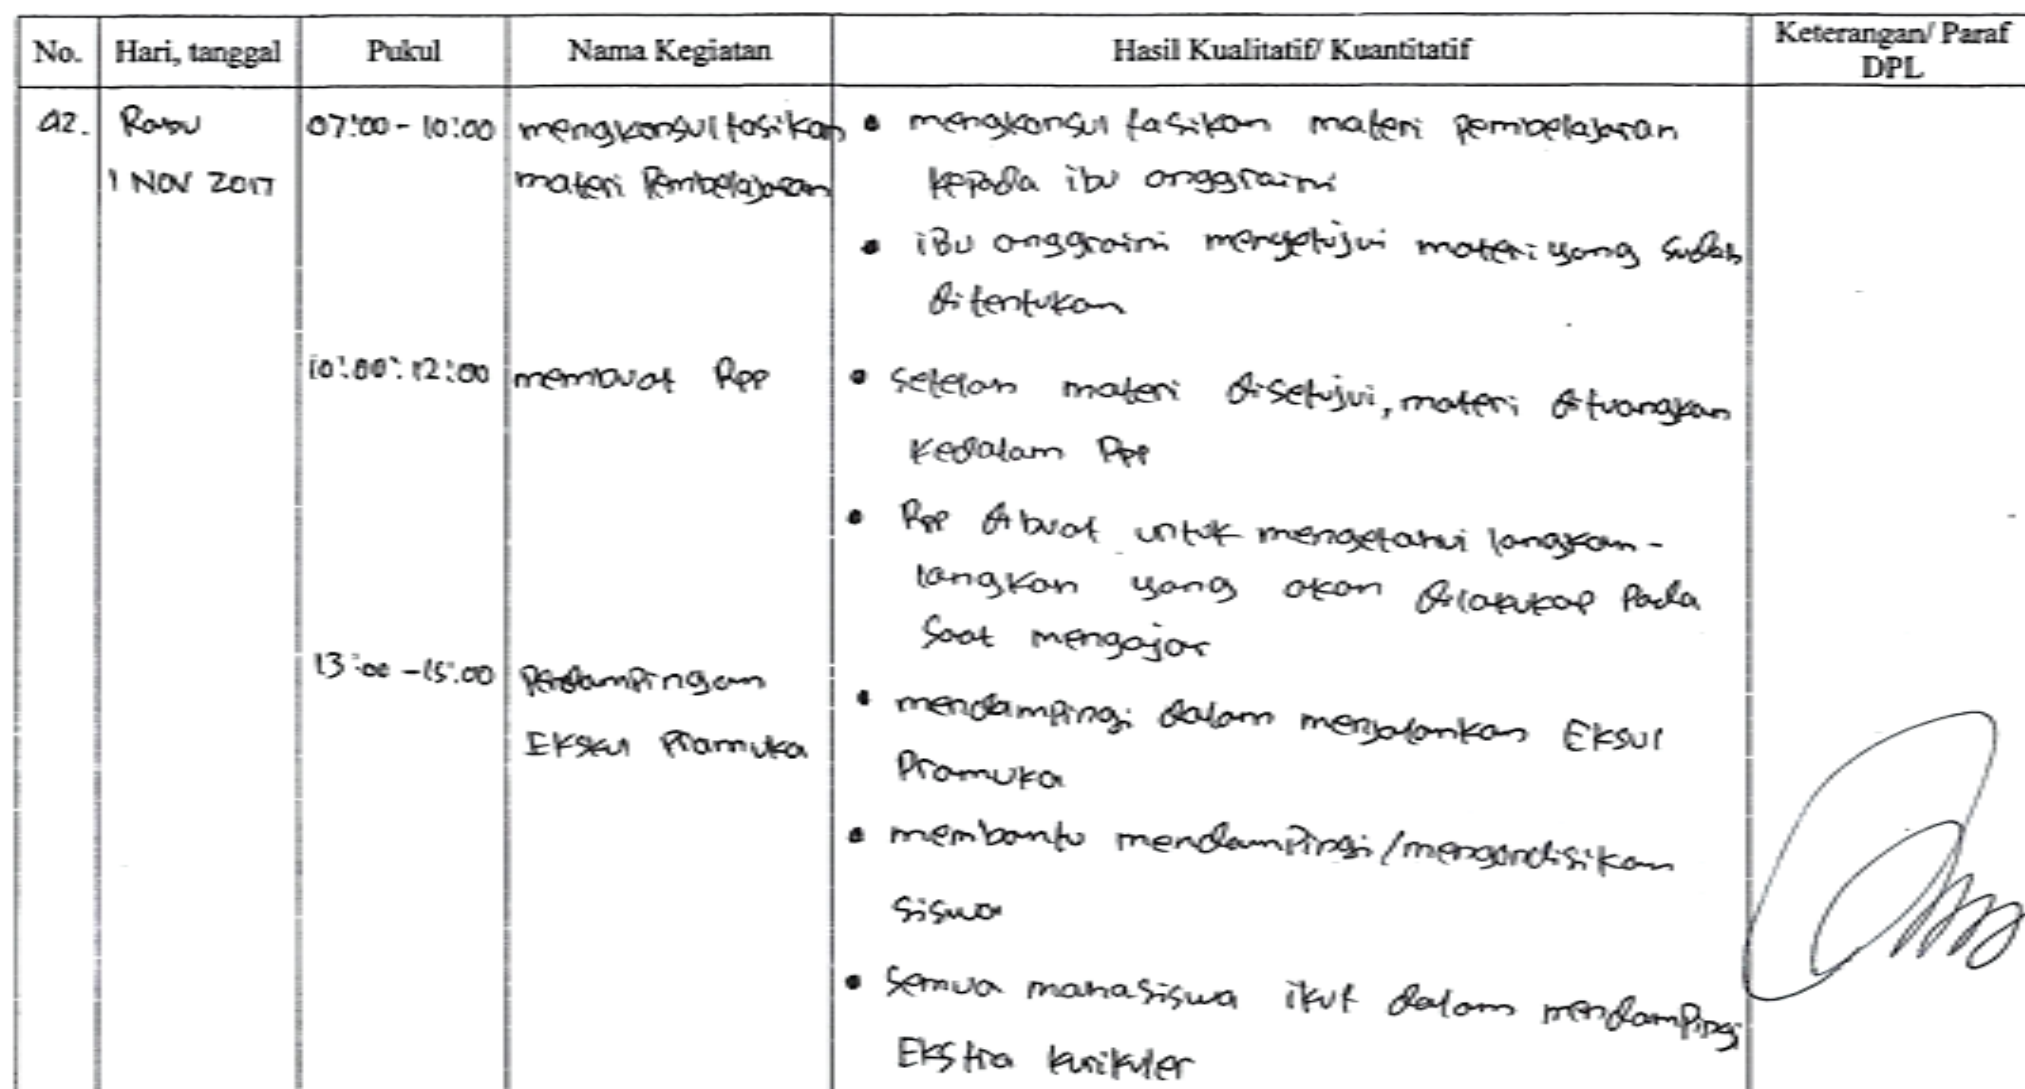 No. Hari, tanggal Pukul Nama Kegiatan Hasil Kualitatif/ Kuantitatif Keterangan/ Paraf
DPL
42. Rabu 07:00 - 10:00 mengkonsultasikan • mengkonsultasikan materi pembelajaran
1 NOV 2017 materi Pembelajaran kepada ibu anggraini
• iBu anggraini mengetujui materi yang sudah
ditentukan
10:00: 12:00 membuat Rpp • setelah materi disetujui, materi dituangkan
Kedalam Rpp
• Rpp dibuat untuk mengetahui langkah-
langkah yang akan dilakukan Pada
Saat mengajar
13:00 - 15:00 Pendampingan • mendampingi dalam menjalankan Eksul
Ekskul Pramuka Pramuka
• membantu mendampingi/mengondisikan
siswa
• Semua mahasiswa ikut dalam mendampingi
Ekstra kurikuler